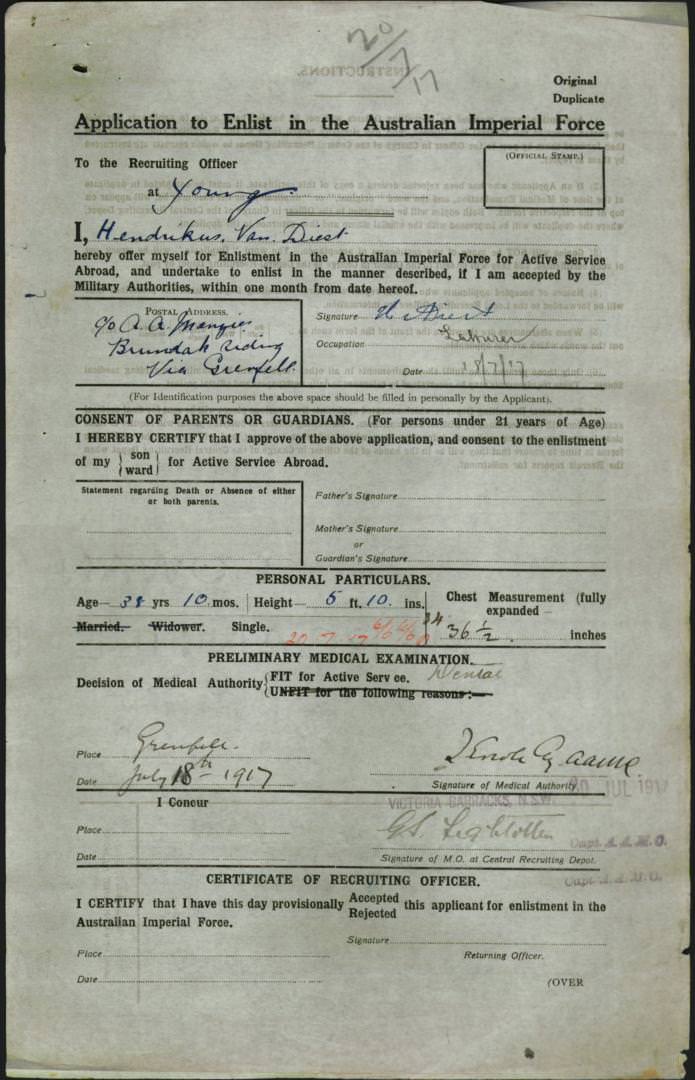 20/7/17
Original
Duplicate
Application to Enlist in the Australian Imperial Force
To the Recruiting Officer
(OFFICIAL STAMP.)
at Young
I, Hendrikus Van Diest
hereby offer myself for Enlistment in the Australian Imperial Force for Active Service
Abroad, and undertake to enlist in the manner described, if I am accepted by the
Military Authorities, within one month from date hereof.
POSTAL ADDRESS.
c/o A. A.
Brundah Siding
Via Grenfell
Signature H. v Diest
Occupation Labourer
Date 18/7/17
(For Identification purposes the above space should be filled in personally by the Applicant).
CONSENT OF PARENTS OR GUARDIANS. (For persons under 21 years of Age)
I HEREBY CERTIFY that I approve of the above application, and consent to the enlistment
of my {son ward} for Active Service Abroad.
Statement regarding Death or Absence of either
or both parents.
Father's Signature
Mother's Signature
or
Guardian's Signature
PERSONAL PARTICULARS.
Age— 38 yrs 10 mos. Height— 5 ft. 10 ins.
Chest Measurement (fully
expanded—
Married. Widower. Single. 20 7 17 6/6 6/60
34 36½ inches
PRELIMINARY MEDICAL EXAMINATION.
Decision of Medical Authority {FIT for Active Service. Dental
UNFIT for the following reasons:—
Place Grenfell
Date July 18th 1917
Signature of Medical Authority.
20 JUL 1917
VICTORIA BARRACKS, N.S.W.
I Concur
Place
Date
Capt. A.A.M.C.
Signature of M.O. at Central Recruiting Depot.
Capt. A.A.M.C.
CERTIFICATE OF RECRUITING OFFICER.
I CERTIFY that I have this day provisionally Accepted Rejected this applicant for enlistment in the
Australian Imperial Force.
Signature
Place
Returning Officer.
Date
(OVER